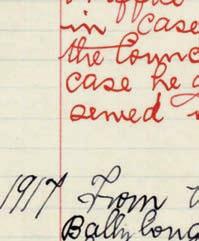 in case
the Counc
case he g
served
1917 From
Ballylong